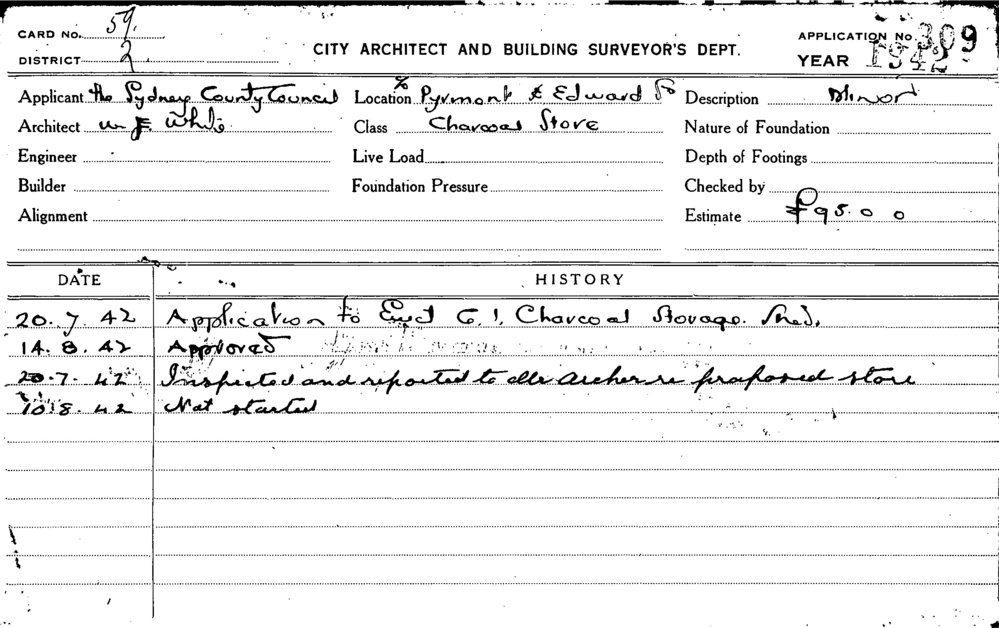 CARD No. 59.
DISTRICT 2
CITY ARCHITECT AND BUILDING SURVEYOR'S DEPT.
APPLICATION No. 309
YEAR 1942
Applicant the Sydney County Council Location % Pyrmont & Edward St Description Minor
Architect W E White Class Charcoal Store Nature of Foundation
Engineer Live Load Depth of Footings
Builder Foundation Pressure Checked by
Alignment Estimate £95. 0 0
DATE HISTORY
20. 7. 42 Application to Erect G. I. Charcoal Storage Shed.
14. 8. 42 Approved
20. 7. 42 Inspected and reported to Mr Archer re proposed store
10. 8. 42 Not started